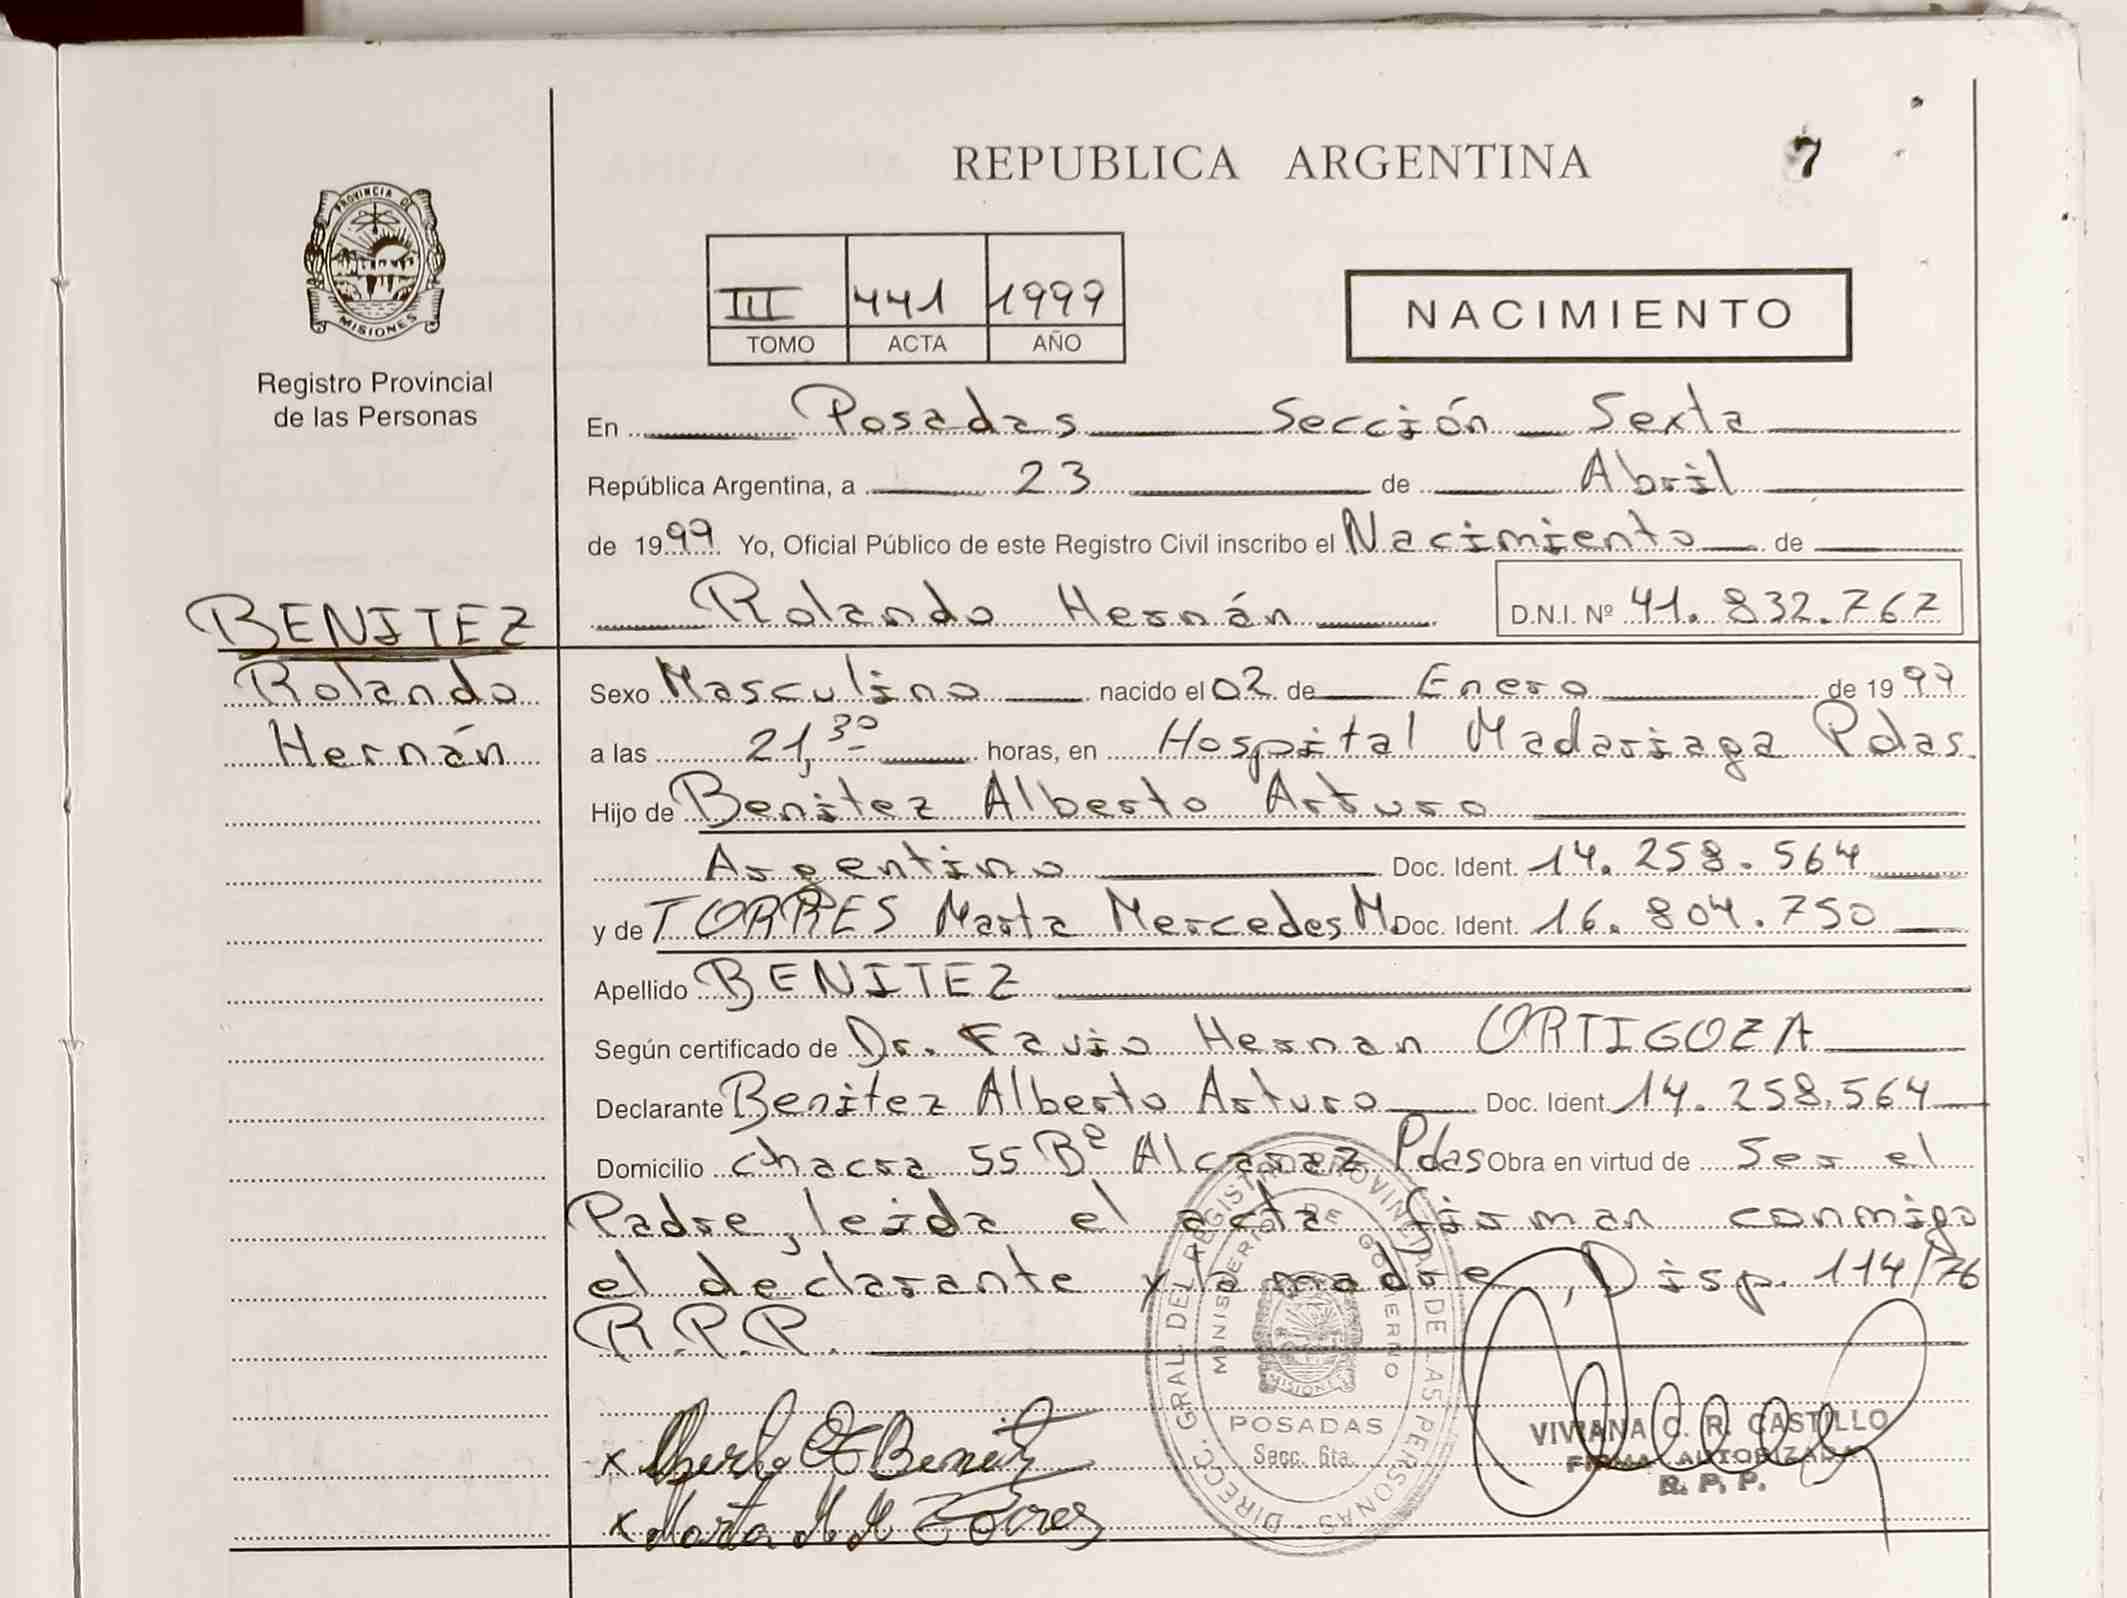 REPUBLICA ARGENTINA
7
PROVINCIA DE
MISIONES
Registro Provincial
de las Personas
III 441 1999
TOMO ACTA AÑO
NACIMIENTO
En Posadas Sección Sexta
República Argentina, a 23 de Abril
de 1999 Yo, Oficial Público de este Registro Civil inscribo el Nacimiento de
Rolando Hernán D.N.I. Nº 41.832.767
BENITEZ
Rolando
Hernán
Sexo Masculino nacido el 02 de Enero de 1999
a las 21,30 horas, en Hospital Madariaga Pdas.
Hijo de Benitez Alberto Arturo
Argentino Doc. Ident. 14.258.564
y de TORRES Marta Mercedes M. Doc. Ident. 16.804.750
Apellido BENITEZ
Según certificado de Dr. Favio Hernan ORTIGOZA
Declarante Benitez Alberto Arturo Doc. Ident. 14.258.564
Domicilio chacra 55 Bº Alcaraz Pdas Obra en virtud de Ser el
Padre, leida el acta firman conmigo
el declarante y la madre, Disp. 114/76
R.P.P.
DIRECC. GRAL. DEL REGISTRO PROVINCIAL DE LAS PERSONAS
MINISTERIO DE GOBIERNO
MISIONES
POSADAS
Secc. 6ta.
x Alberto A Benitez
x Marta M M Torres
VIVIANA C. R. CASTILLO
FIRMA AUTORIZADA
R. P. P.